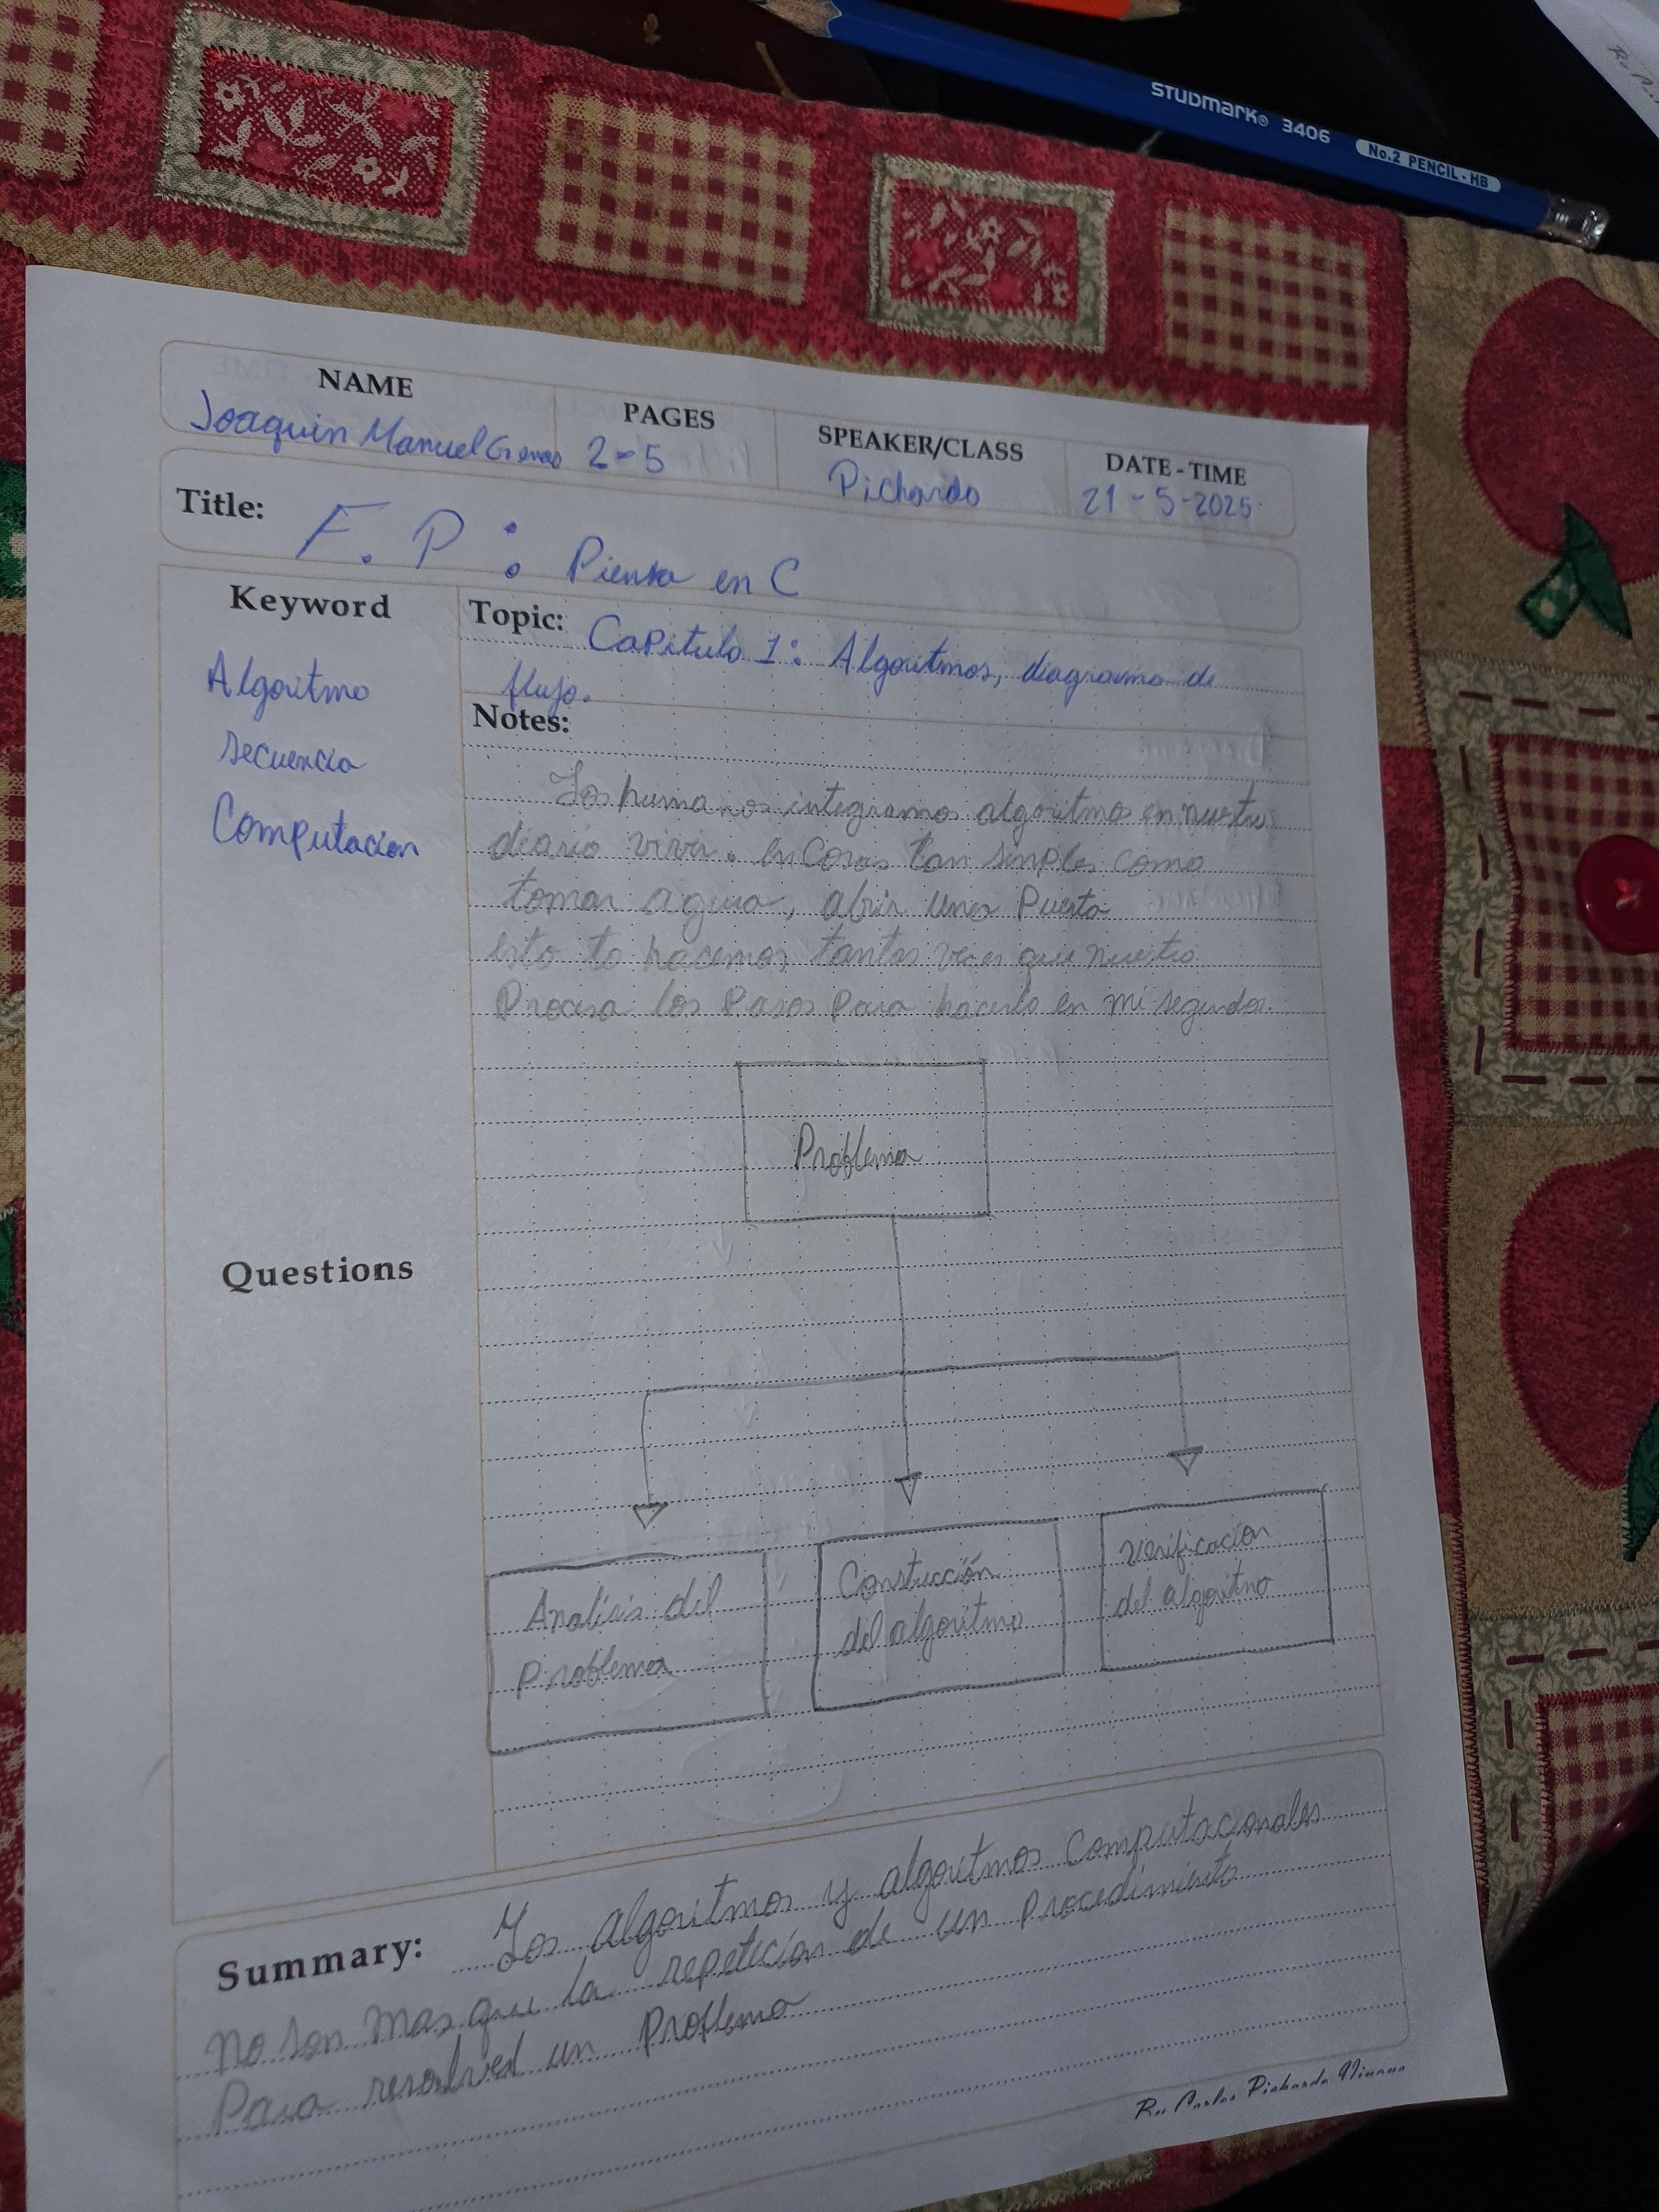 STUDMARK® 3406 No.2 PENCIL - HB
NAME
Joaquin Manuel
PAGES
2-5
SPEAKER/CLASS
Pichardo
DATE - TIME
21-5-2025
Title: F. P : Piensa en C
Keyword
Algoritmo
secuencia
Computacion
Topic: Capitulo 1: Algoritmos, diagrama de
flujo.
Notes:
Los humanos integramos algoritmos en nuestro
diario vivir. en Cosas tan simples como
tomar agua, abrir una Puerta
esto lo hacemos tantas veces que nuestro
Procesa los Pasos Para hacerlo en mi segundos.
Problema
Analisis del
Problema
Constucción
del algoritmo
Verificacion
del algoritmo
Questions
Summary: Los algoritmos y algoritmos Computacionales
no son mas que la repeticion de un Procedimiento
Para resolved un Problema
Carlos Pichardo